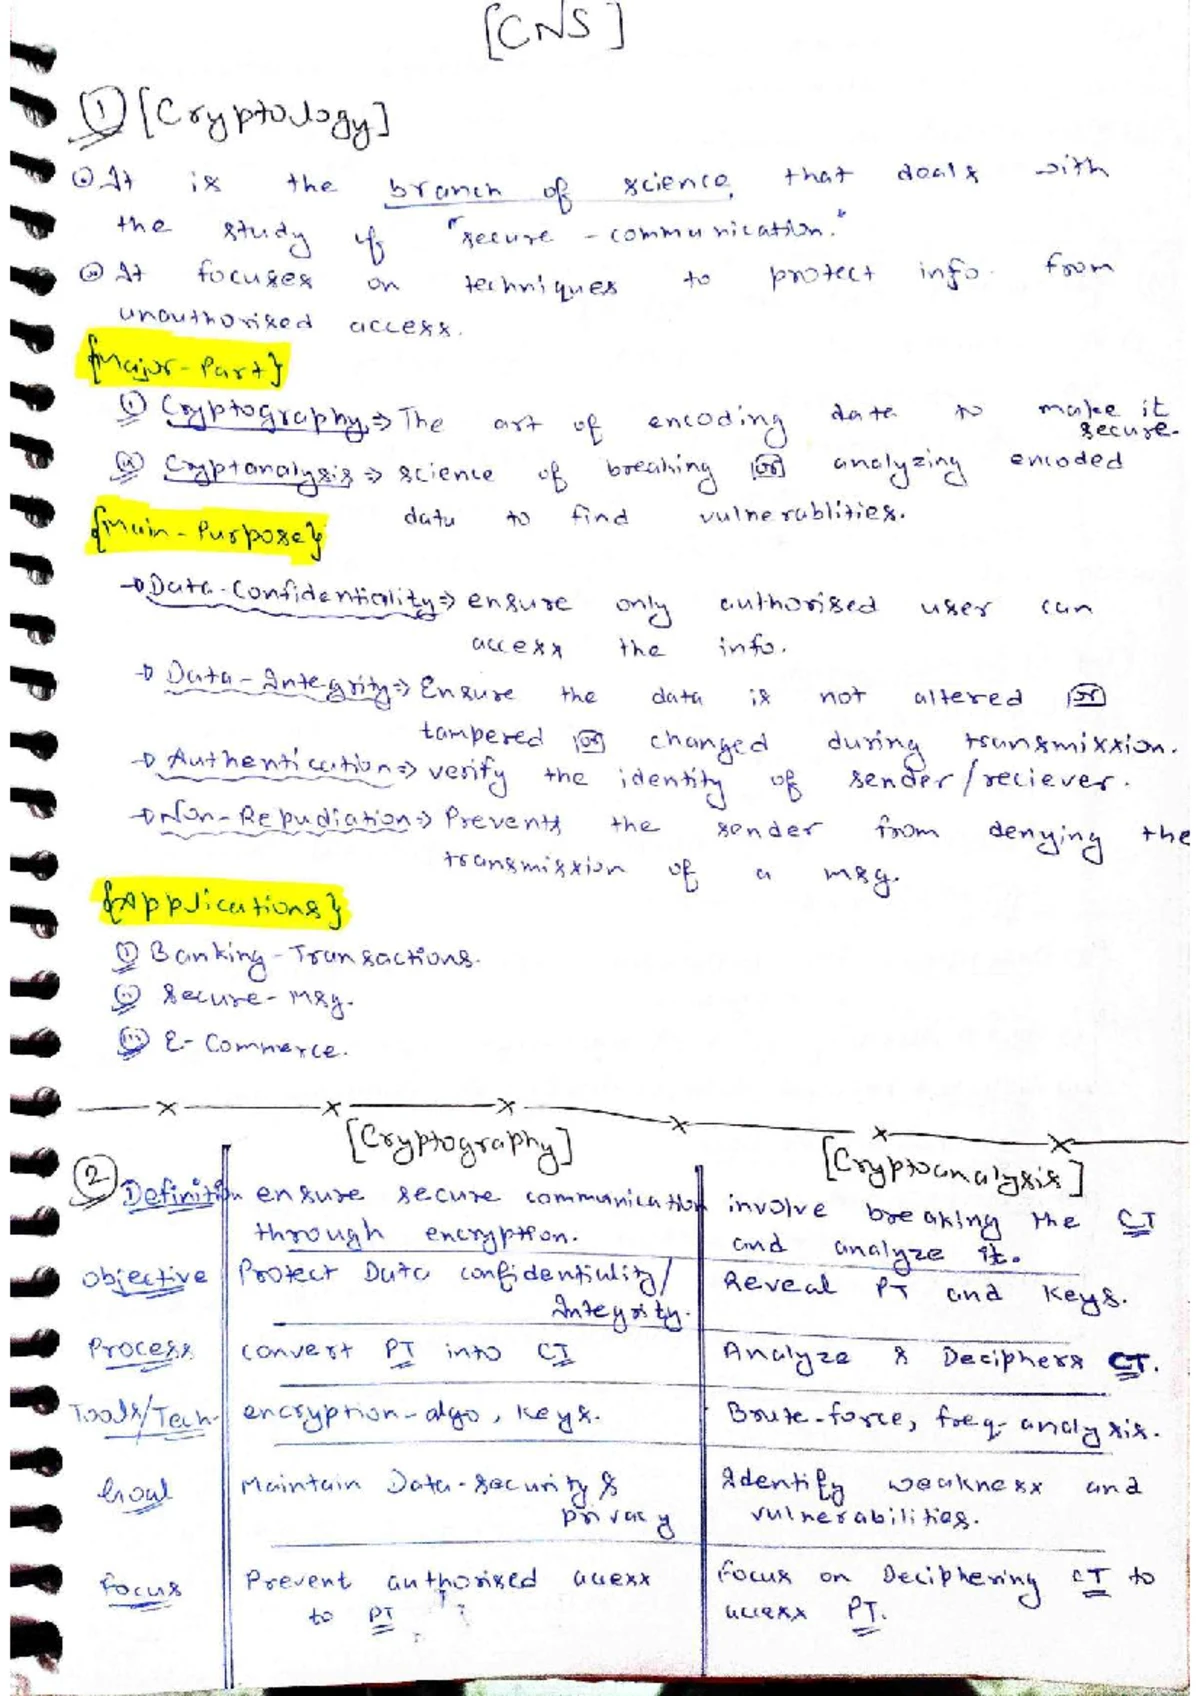 [CNS]
① [Cryptology]
⊙ It is the branch of science, that deals with
the study of "secure-communication."
⊙ It focuses on techniques to protect info. from
unauthorised access.
{Major-Part}
(i) Cryptography ⇒ The art of encoding data to make it
secure.
(ii) Cryptanalysis ⇒ science of breaking or analyzing encoded
data to find vulnerablities.
{Main-Purpose}
→ Data-Confidentiality ⇒ ensure only authorised user can
access the info.
→ Data-Integrity ⇒ Ensure the data is not altered or
tampered or changed during transmission.
→ Authentication ⇒ verify the identity of sender/reciever.
→ Non-Repudiation ⇒ Prevents the sender from denying the
transmission of a msg.
{Applications}
(i) Banking-Transactions.
(ii) Secure-msg.
(iii) E-Commerce.
[Cryptography] [Cryptoanalysis]
② Definition ensure secure communication involve breaking the CT
through encryption. and analyze it.
Objective Protect Data confidentiality/ Reveal PT and Keys.
Integrity.
Process convert PT into CT Analyze & Deciphers CT.
Tools/Tech. encryption-algo, Keys. Brute-force, freq-analysis.
Goal Maintain Data-security & Identify weakness and
privacy vulnerabilities.
Focus Prevent authorised access Focus on Deciphering CT to
to PT access PT.